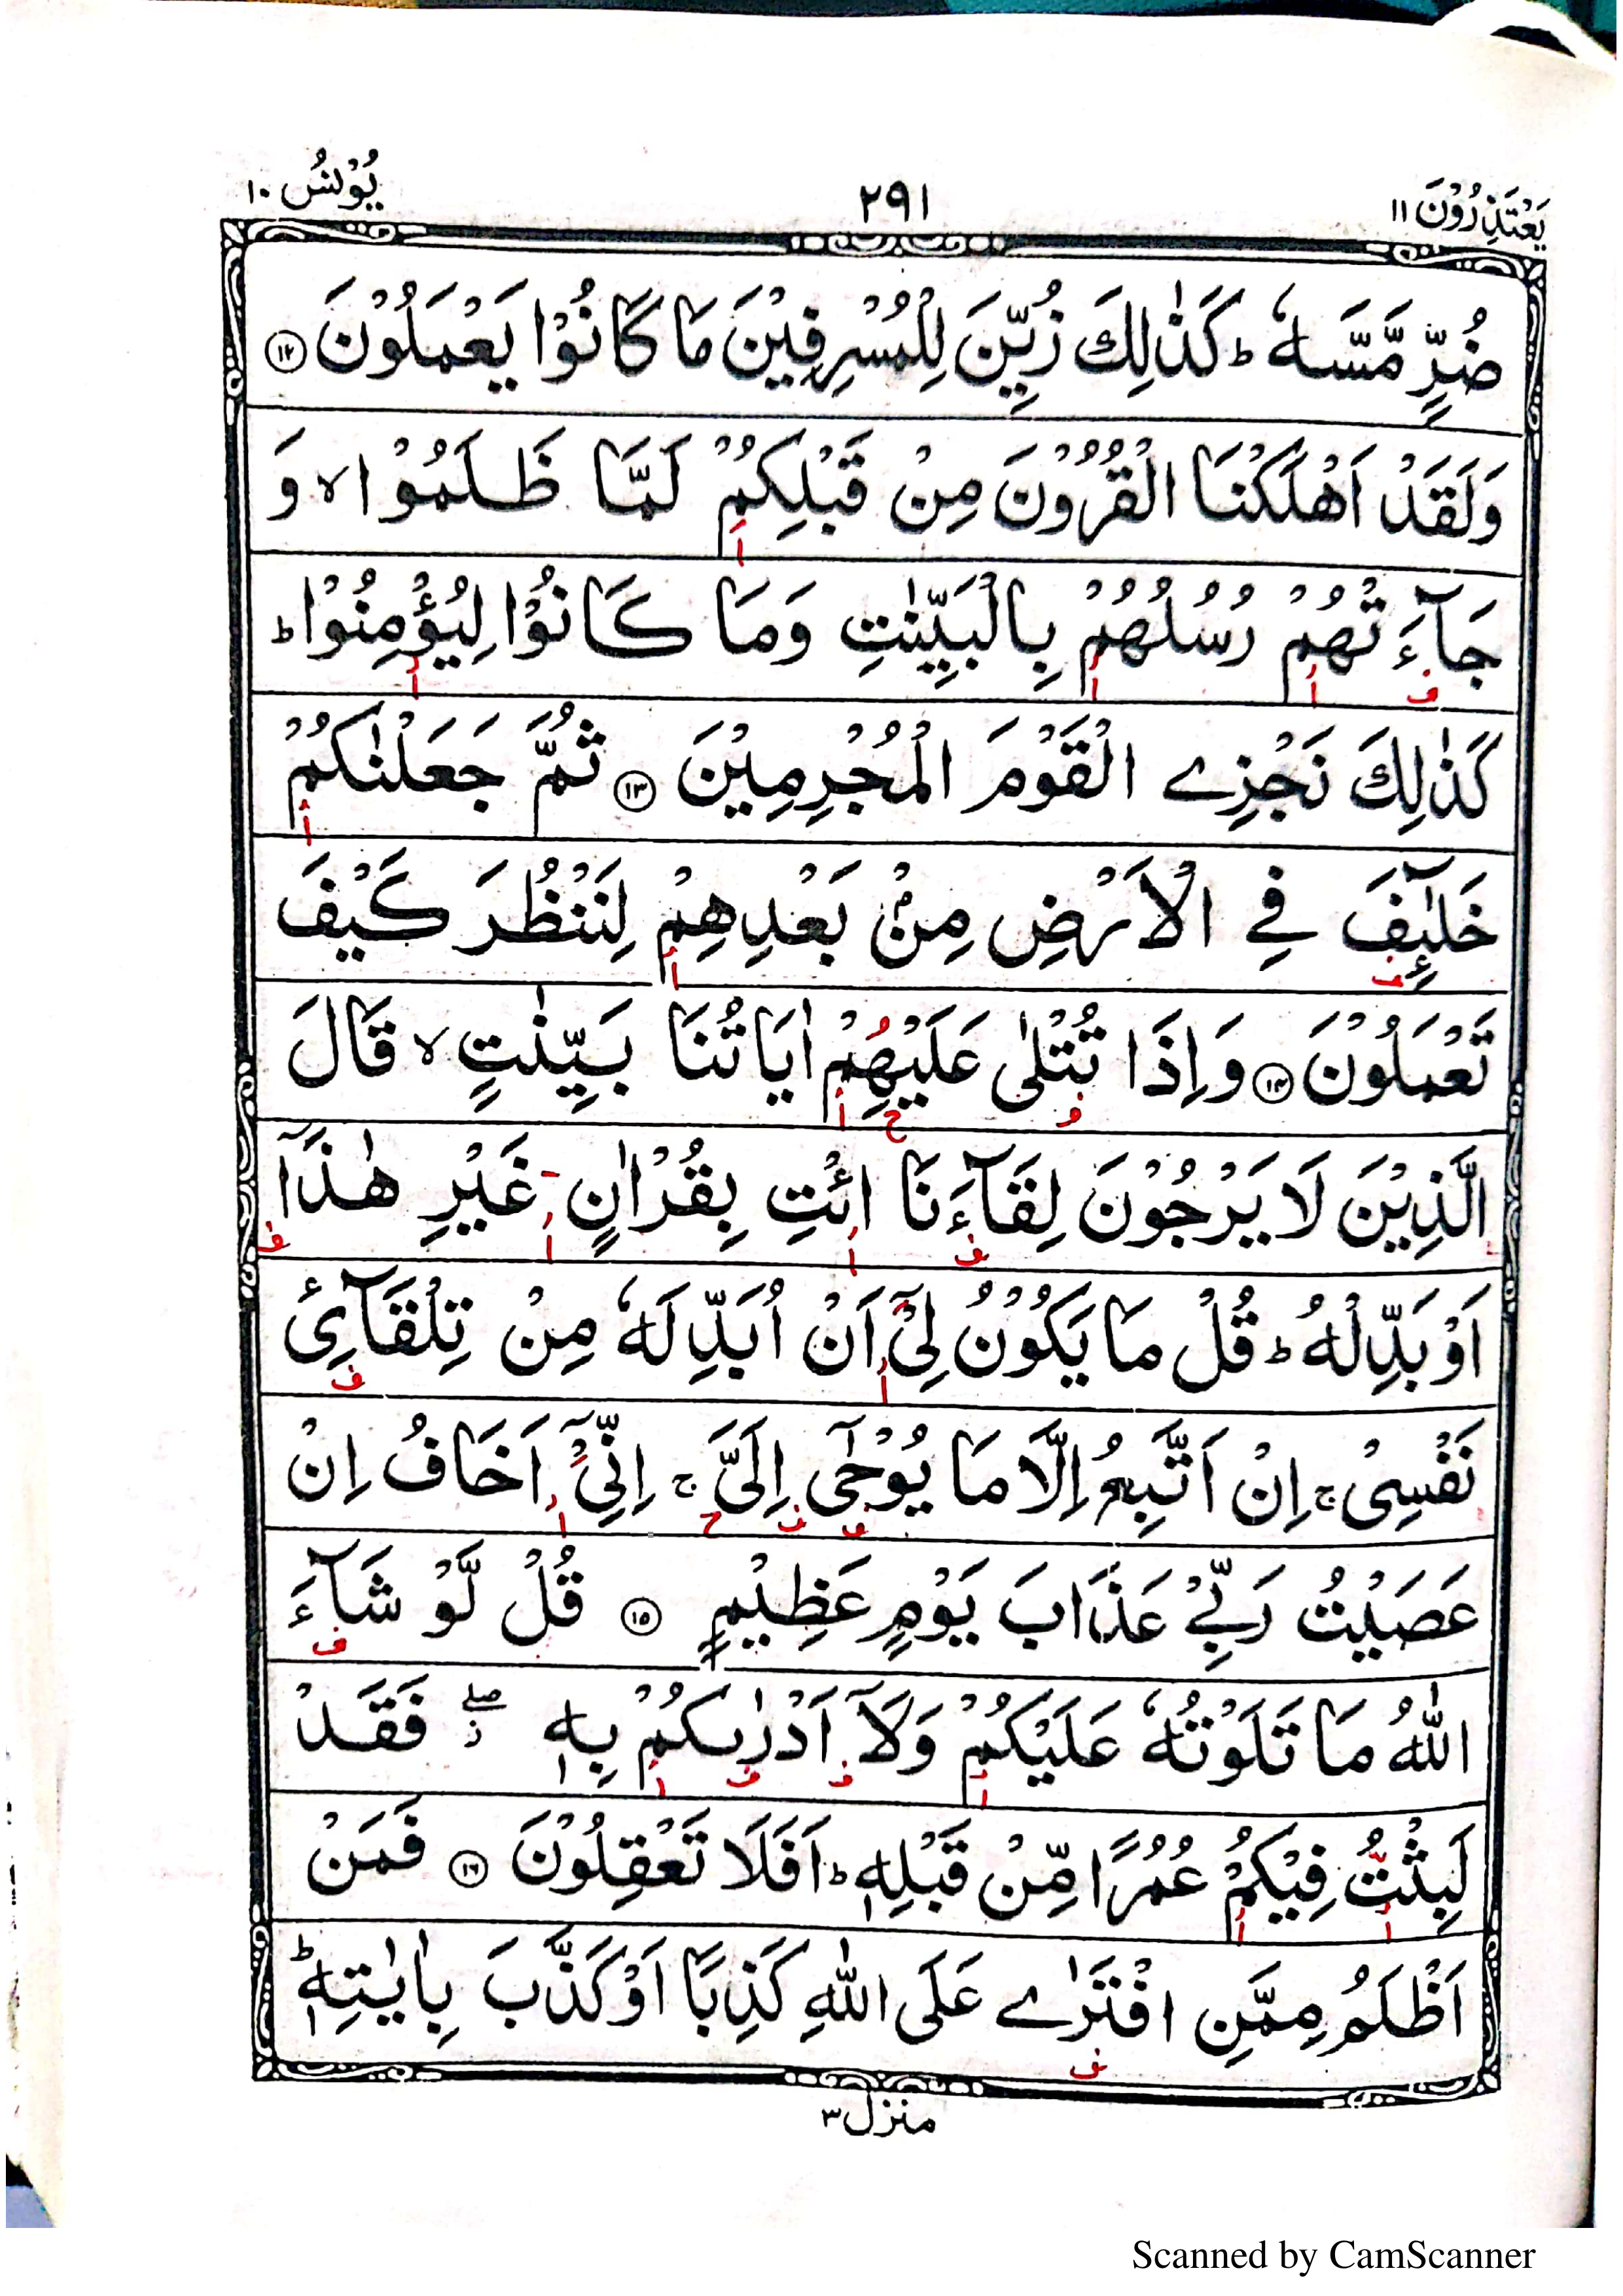 يَعْتَذِرُوْنَ ١١
٢٩١
يُوْنُسُ ١٠
ضُرٍّ مَّسَّهٗ ؕ كَذٰلِكَ زُيِّنَ لِلْمُسْرِفِيْنَ مَا كَانُوْا يَعْمَلُوْنَ ١٢
وَلَقَدْ اَهْلَكْنَا الْقُرُوْنَ مِنْ قَبْلِكُمْ لَمَّا ظَلَمُوْا ۙ وَ
جَآءَتْهُمْ رُسُلُهُمْ بِالْبَيِّنٰتِ وَمَا كَانُوْا لِيُؤْمِنُوْا ؕ
كَذٰلِكَ نَجْزِے الْقَوْمَ الْمُجْرِمِيْنَ ١٣ ثُمَّ جَعَلْنٰكُمْ
خَلٰٓئِفَ فِے الْاَرْضِ مِنْۢ بَعْدِهِمْ لِنَنْظُرَ كَيْفَ
تَعْمَلُوْنَ ١٤ وَاِذَا تُتْلٰى عَلَيْهِمْ اٰيَاتُنَا بَيِّنٰتٍ ۙ قَالَ
الَّذِيْنَ لَا يَرْجُوْنَ لِقَآءَنَا ائْتِ بِقُرْاٰنٍ غَيْرِ هٰذَآ
اَوْ بَدِّلْهُ ؕ قُلْ مَا يَكُوْنُ لِىْٓ اَنْ اُبَدِّلَهٗ مِنْ تِلْقَآئِ
نَفْسِىْ ۚ اِنْ اَتَّبِعُ اِلَّا مَا يُوْحٰٓى اِلَىَّ ۚ اِنِّىْٓ اَخَافُ اِنْ
عَصَيْتُ رَبِّىْ عَذَابَ يَوْمٍ عَظِيْمٍ ١٥ قُلْ لَّوْ شَآءَ
اللّٰهُ مَا تَلَوْتُهٗ عَلَيْكُمْ وَلَآ اَدْرٰىكُمْ بِهٖ ۖ ز فَقَدْ
لَبِثْتُ فِيْكُمْ عُمُرًا مِّنْ قَبْلِهٖ ؕ اَفَلَا تَعْقِلُوْنَ ١٦ فَمَنْ
اَظْلَمُ مِمَّنِ افْتَرٰے عَلَى اللّٰهِ كَذِبًا اَوْ كَذَّبَ بِاٰيٰتِهٖ ؕ
منزل ٣
Scanned by CamScanner